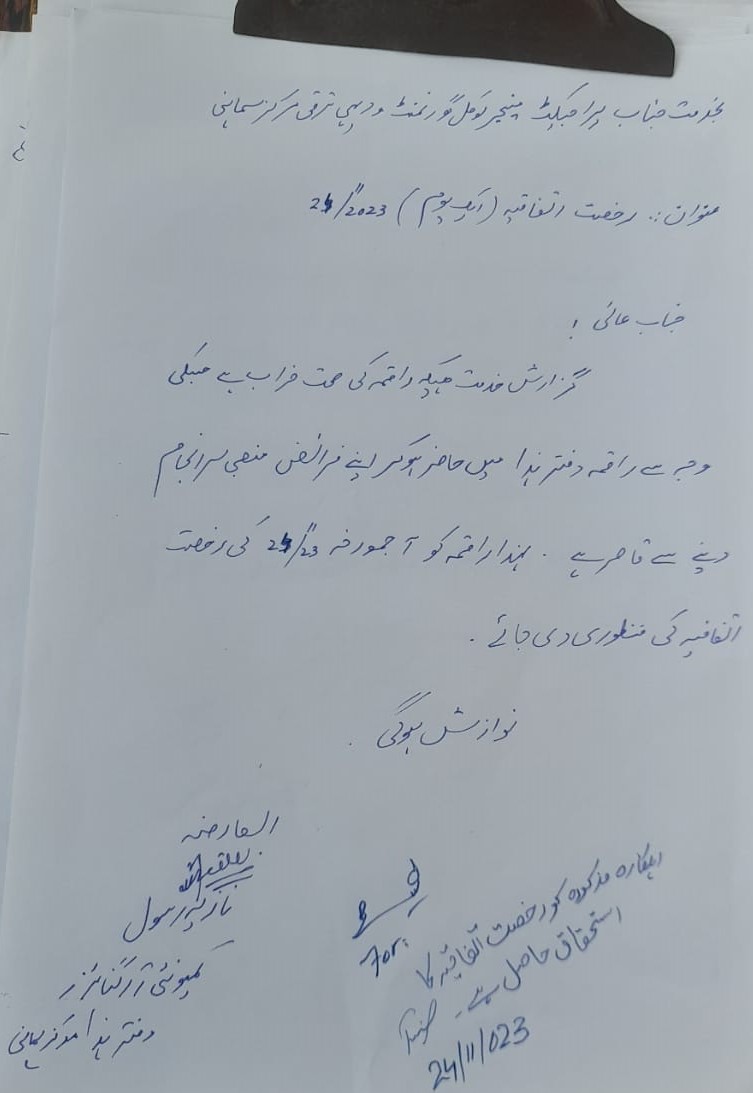 بخدمت جناب پراجیکٹ مینیجر لوکل گورنمنٹ و دیہی ترقی مرکز سماہنی
عنوان :. رخصت اتفاقیہ (ایک یوم) 24/11/2023
جناب عالی !
گزارش خدمت ہیکہ راقمہ کی صحت خراب ہے جسکی
وجہ سے راقمہ دفتر ہذا میں حاضر ہوکر اپنے فرائض منصبی سرانجام
دینے سے قاصر ہے . لہذا راقمہ کو آجمورخہ 24/11/23 کی رخصت
اتفاقیہ کی منظوری دی جائے .
نوازش ہوگی .
العارضہ
نازیہ رسول
کمیونٹی آرگنائزر
دفتر ہذا مرکز سماہنی
For:
اہلکارہ مذکورہ کو رخصت اتفاقیہ کا
استحقاق حاصل ہے۔
24/11/023